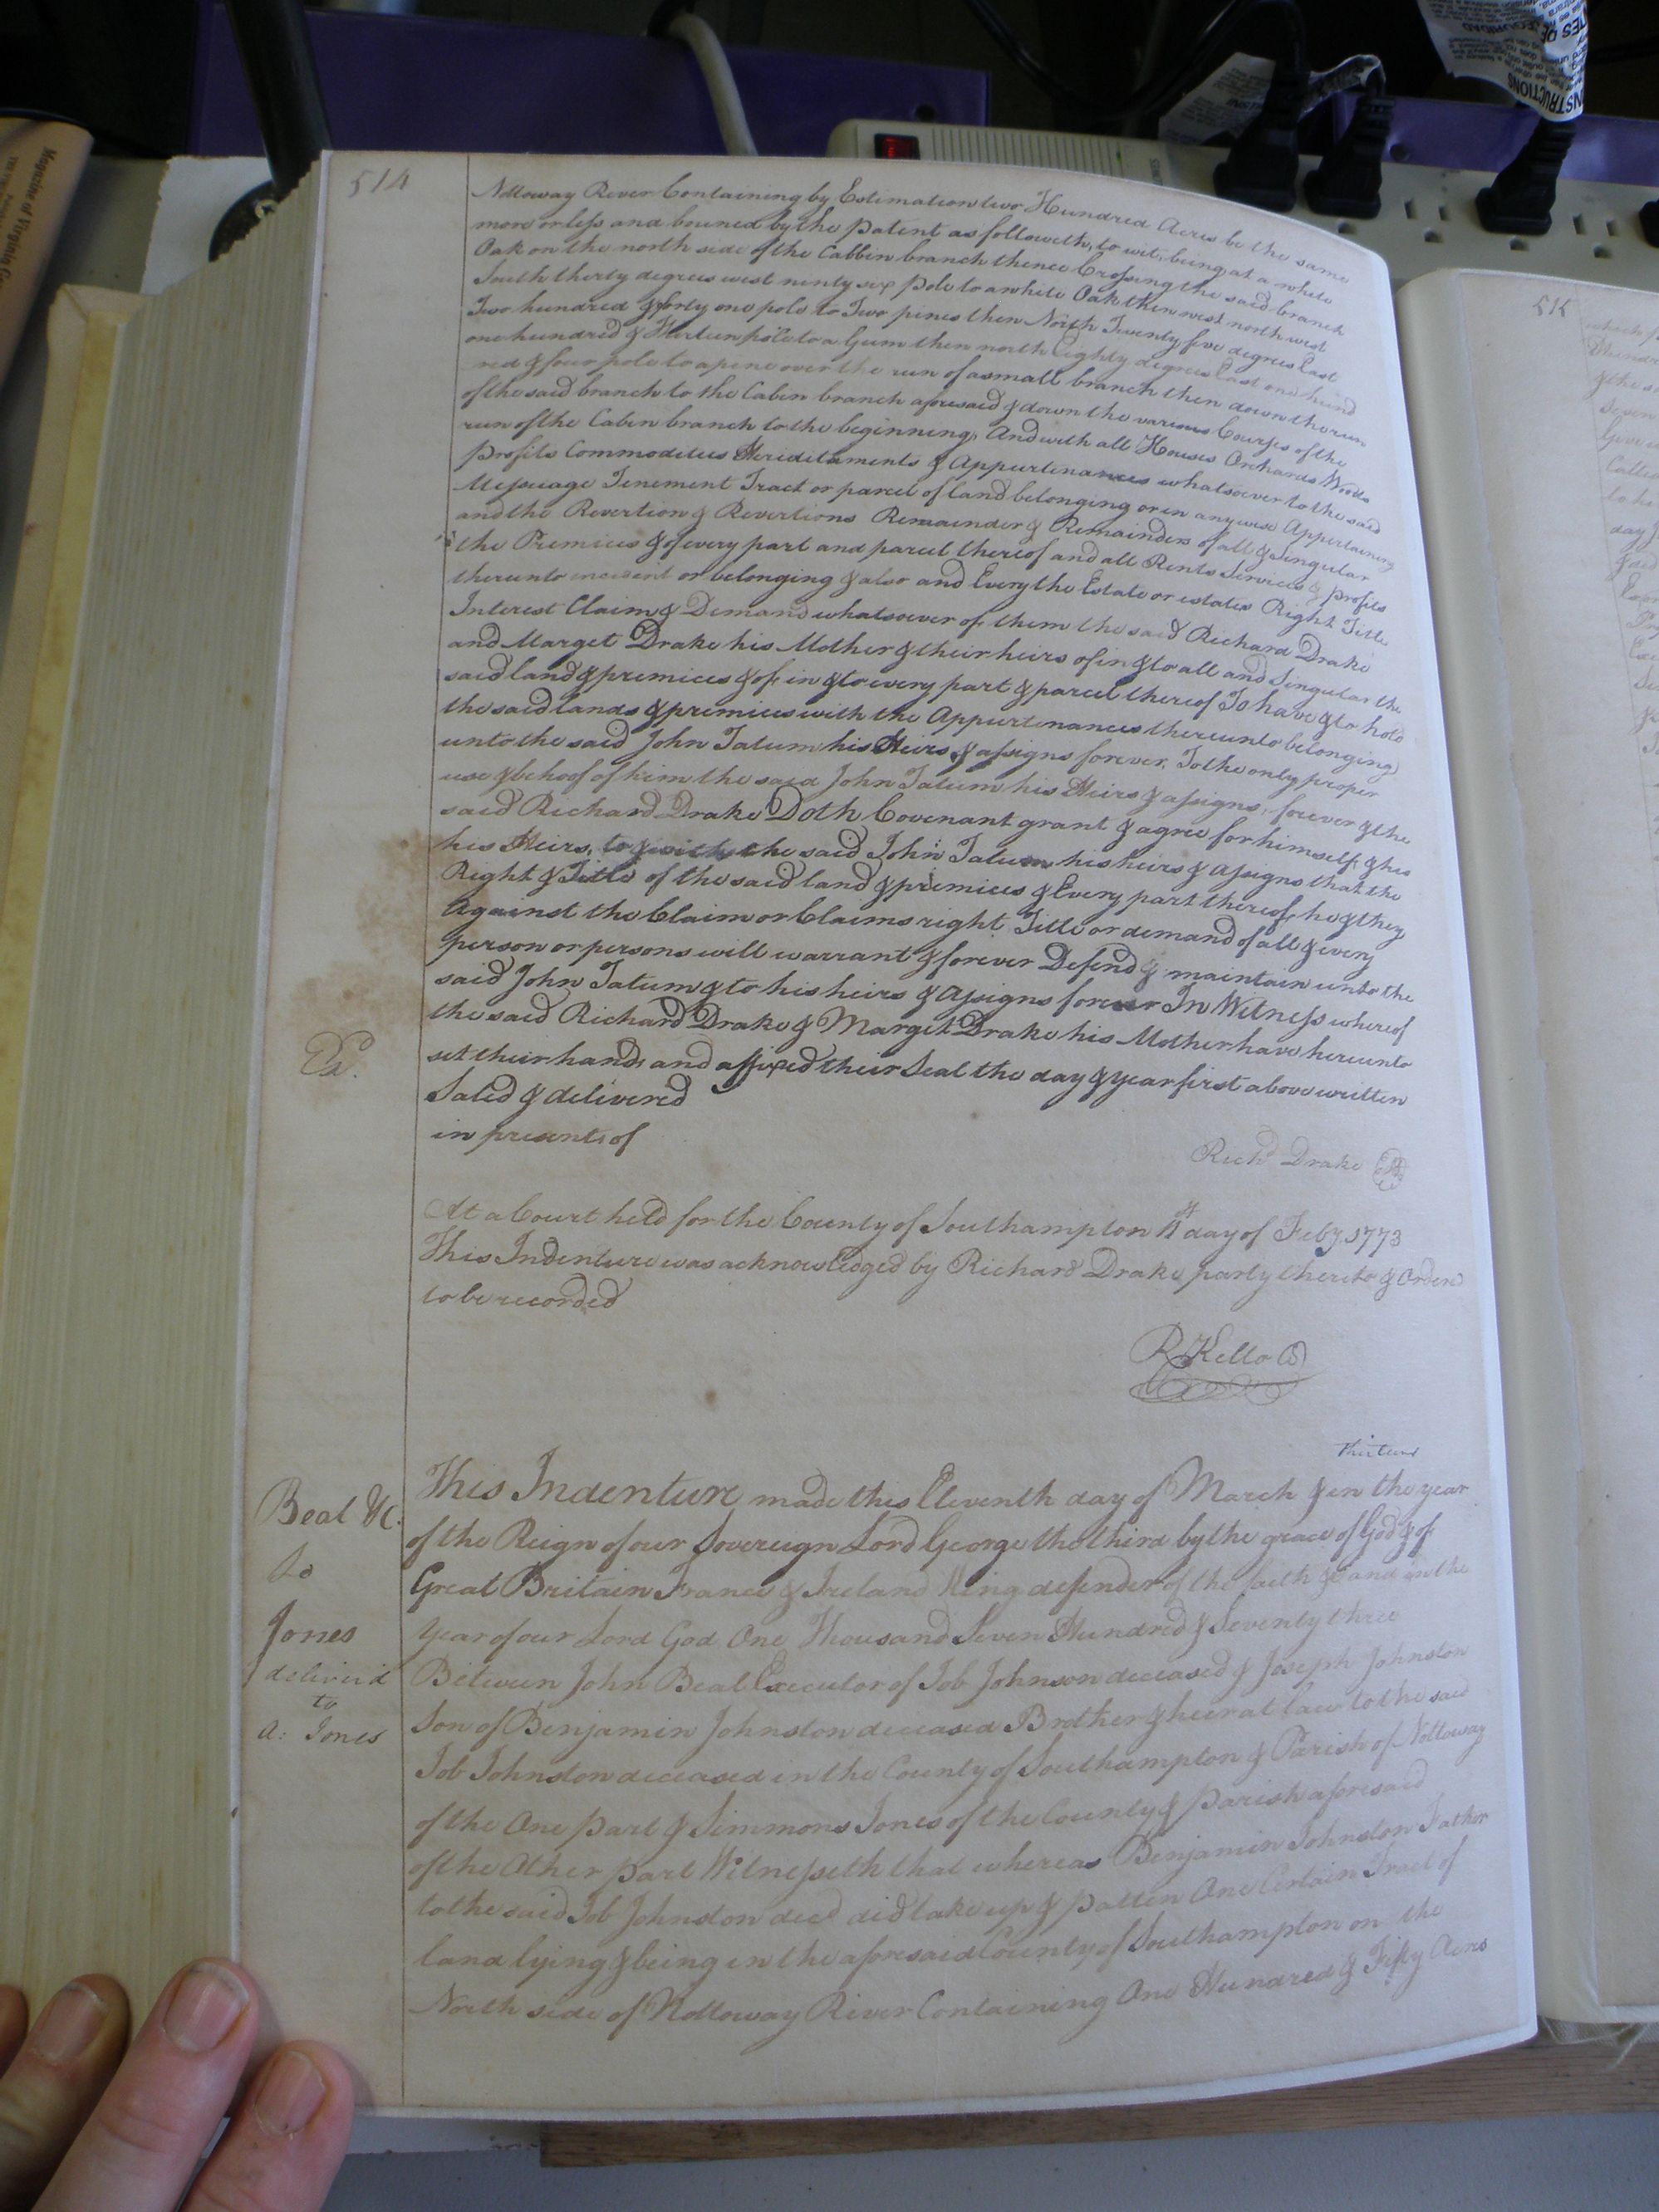 514
Nottoway River Containing by Estimation two Hundred Acres be the same
more or less and bouned by the patent as followeth, to wit, being at a white
Oak on the north side of the Cabbin branch thence Crossing the said branch
South therty degrees west ninty six pole to a white Oak then west north west
Two hundred & forty one pole to Two pines then North Twenty five degrees East
one hundred & Therteen pole to a Gum then north Eighty degrees East one hund
red & four pole to a pine over the run of a small branch then down the run
of the said branch to the Cabin branch aforesaid & down the various Courses of the
run of the Cabin branch to the beginning, And with all Houses Orchards Woods
profits Commodities Hereditaments & Appurtenances whatsoever to the said
Messuage Tenement Tract or parcel of land belonging or in any wise Appertaining
and the Revertion & Revertions Remainder & Remainders of all & Singular
the Premices & of every part and parcel thereof and all Rents Services & profits
thereunto incident or belonging & also and Every the Estate or estates Right Title
Interest Claim & Demand whatsoever of them the said Richard Drake
and Marget Drake his Mother & their heirs of in & to all and Singular the
said land & premices & of in & to every part & parcel thereof To have & to hold
the said lands & premices with the Appurtenances thereunto belonging
unto the said John Tatum his Heirs & assigns forever, To the only proper
use & behoof of him the said John Tatum his Heirs & assigns, forever & the
said Richard Drake Doth Covenant grant & agree for himself & his
his Heirs, to & with the said John Tatum his heirs & assigns that the
Right & Title of the said land & premices & Every part thereof, he & they
Against the Claim or Claims right Title or demand of all & every
person or persons will warrant & forever Defend & maintain unto the
said John Tatum & to his heirs & assigns forever In Witness whereof
the said Richard Drake & Marget Drake his Mother have hereunto
set their hands and affixed their Seal the day & year first above written
Saled & delivered
in presents of
Richd Drake
At a Court held for the County of Southampton 11th day of Feby. 1773
This Indenture was acknowledged by Richard Drake party thereto & Orderd
to be recorded
R Kello
thirteen
This Indenture made this Eleventh day of March & in the year
of the Reign of our Sovereign Lord George the third by the grace of God & of
Great Britain France & Ireland King defender of the faith & and in the
Year of our Lord God One Thousand Seven Hundred & Seventy three
Between John Beal Executor of Job Johnson deceased & Joseph Johnston
Son of Benjamin Johnston deceased Brother & heir at law to the said
Job Johnston deceased in the County of Southampton & Parish of Nottoway
of the One part & Simmons Jones of the County & parish aforesaid
of the Other part Witnesseth that whereas Benjamin Johnston Father
to the said Job Johnston decd did take up & patten One Certain Tract of
land lying & being in the aforesaid County of Southampton on the
North side of Nottoway River Containing One Hundred & Fifty Acres
Beal &c.
to
Jones
deliverd
to
A: Jones
515
Magazine of Virginia
INSTRUCTIONS